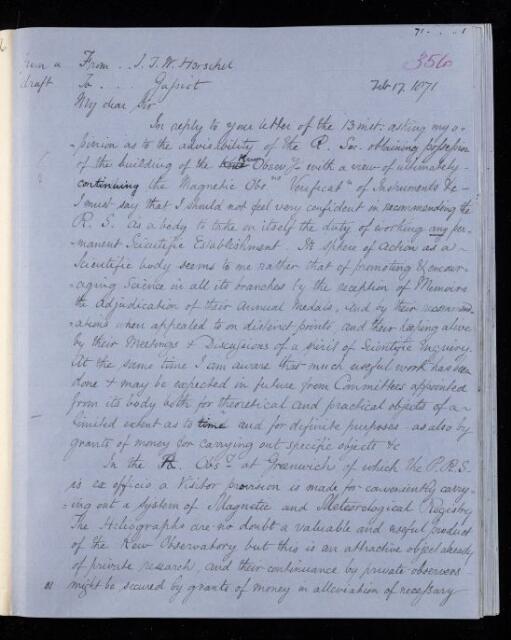 71 . . . 1
from a From . . J. F. W. Herschel 356
draft To . . . . Gassiot Feb 17. 1871
My dear Sir
In reply to your letter of the 13 inst. asking my o-
-pinion as to the advisability of the R. Soc. obtaining possession
of the building of the Kew Obserʸ - with a view of ultimately
continuing the Magnetic Obsⁿˢ Verificatⁿ of Instruments &c -
I must say that I should not feel very confident in recommending the
R. S. as a body to take on itself the duty of working any per-
manent Scientific Establishment. Its sphere of action as a
Scientific body seems to me rather that of promoting & encour-
-aging Science in all its branches by the reception of Memoirs
the Adjudication of their Annual Medals, and by their recommend-
-ations when appealed to on distinct points, and their keeping alive
by their Meetings & Discussions of a spirit of Scientific Inquiry.
At the same time I am aware that much useful work has been
done & may be expected in future from Committees appointed
from its body both for theoretical and practical objects of a
limited extent as to time and for definite purposes - as also by
grants of money for carrying out specific objects &c
In the R. Obsʸ at Greenwich of which the P.R.S.
is ex officio a Visitor provision is made for conveniently carry-
-ing out a system of Magnetic and Meteorological Registry
The Heliographs are no doubt a valuable and useful product
of the Kew Observatory but this is an attractive object already
of private research, and their continuance by private observers
might be secured by grants of money in alleviation of necessary